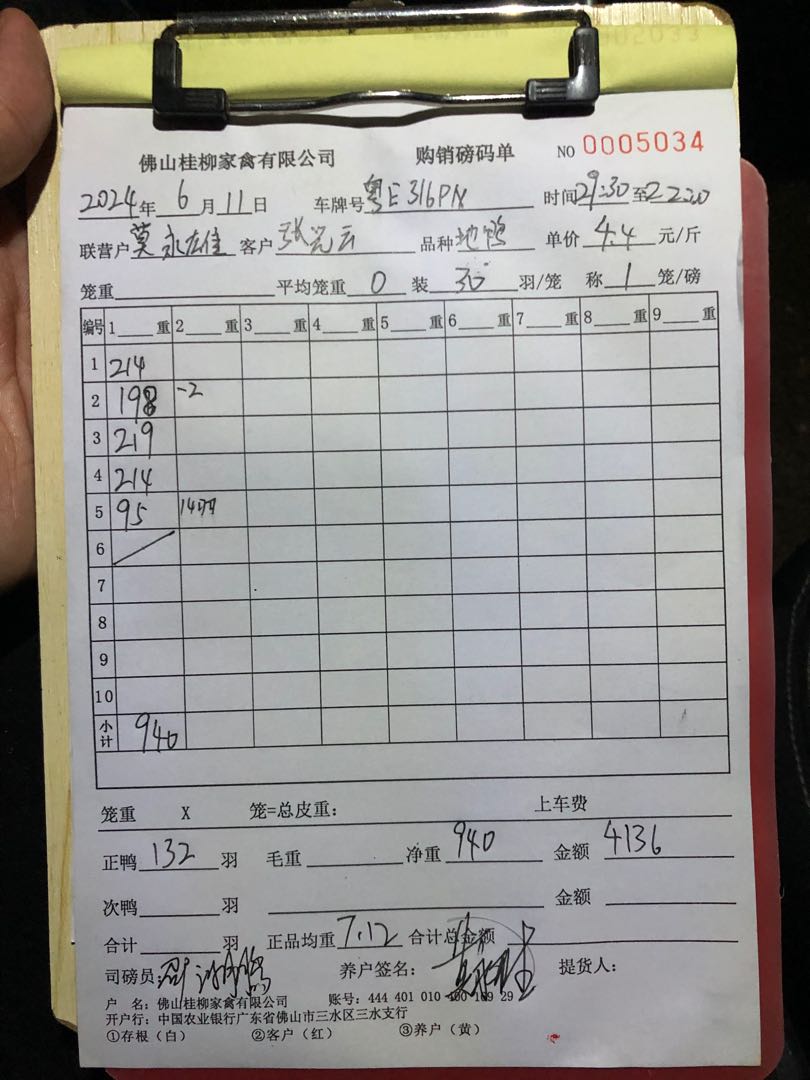 佛山桂柳家禽有限公司 购销磅码单 NO 0005034
2024年 6 月 11 日 车牌号 粤E316PN 时间 29:30 至 2220
联营户 莫永左佳 客户 张光云 品种 地鸭 单价 4.4 元/斤
笼重 平均笼重 0 装 30 羽/笼 称 1 笼/磅
编号 1 重 2 重 3 重 4 重 5 重 6 重 7 重 8 重 9 重
1 214
2 198 -2
3 219
4 214
5 95 14羽
6
7
8
9
10
小计 940
笼重 X 笼=总皮重: 上车费
正鸭 132 羽 毛重 净重 940 金额 4136
次鸭 羽 金额
合计 羽 正品均重 7.12 合计总金额
司磅员: 养户签名: 提货人:
户 名: 佛山桂柳家禽有限公司 账号: 444 401 010 400 169 29
开户行: 中国农业银行广东省佛山市三水区三水支行
①存根（白） ②客户（红） ③养户（黄）